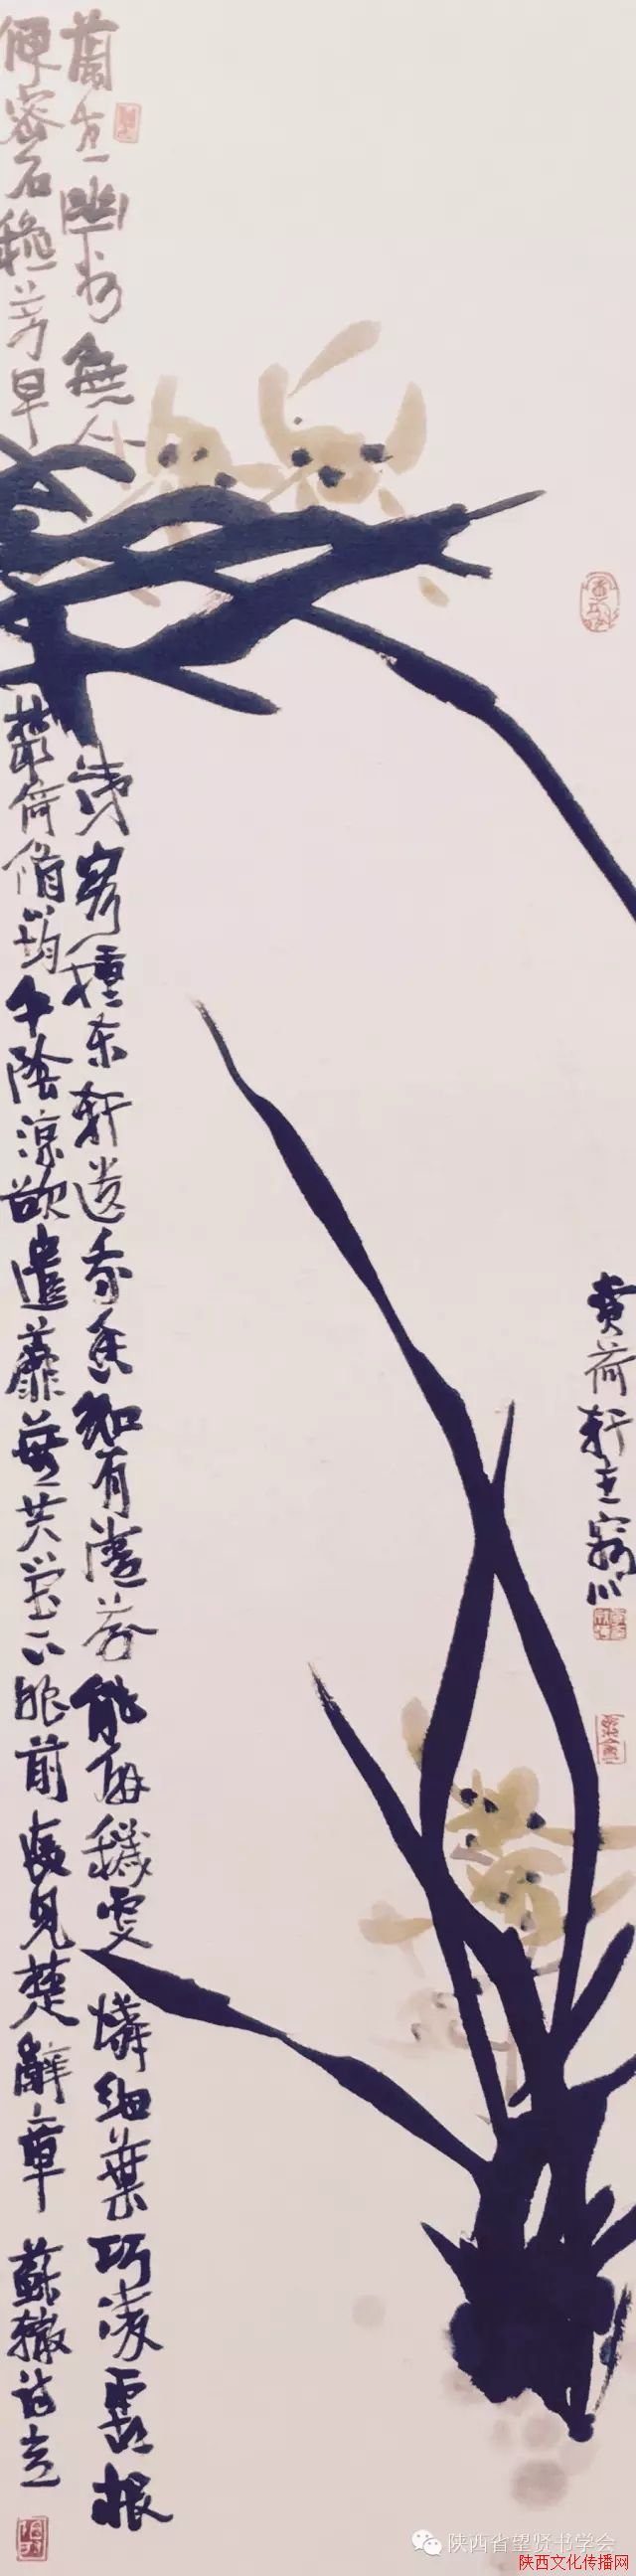 蘭生幽谷無人識客種東軒遺我香知有清芬能解穢更憐細葉巧凌霜根
便密石穐芳早叢倚脩筠午陰涼欲遣蘼蕪共堂下眼前長見楚辭章 蘇轍詩意
荷軒主 川
陕西省望贤书学会
陕西文化传播网